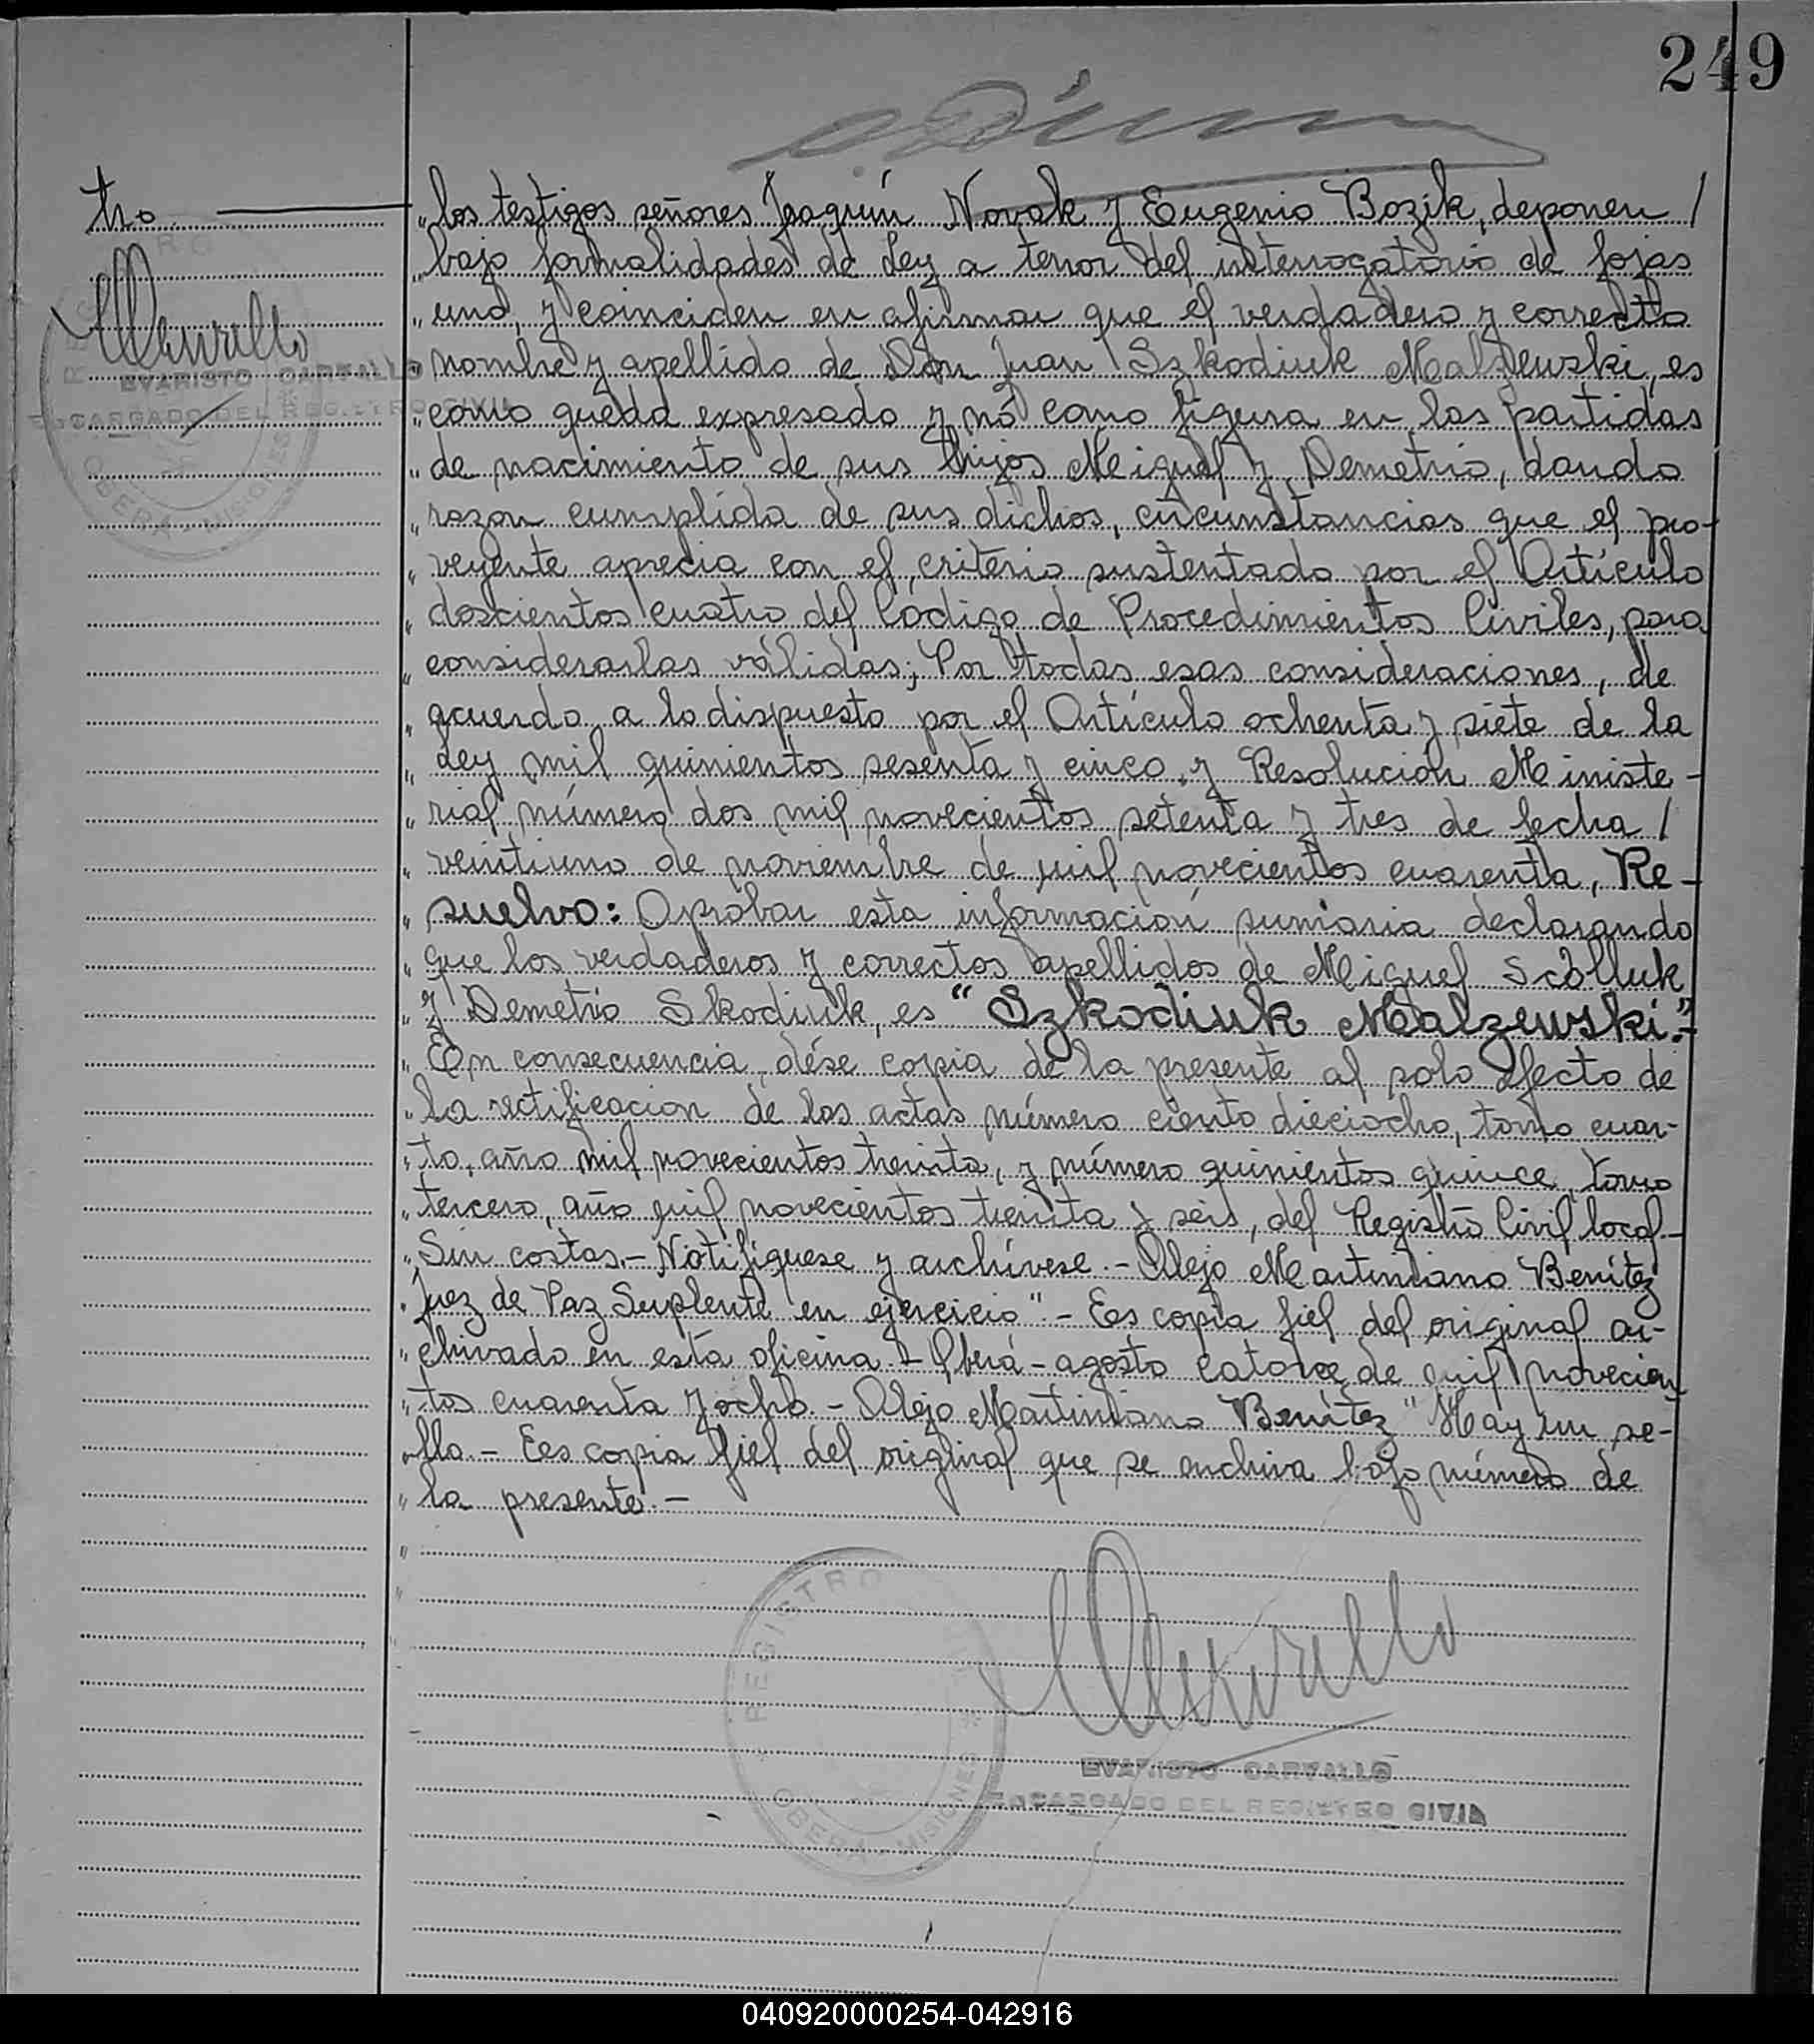 249
tro
"los testigos señores Joaquín Novak y Eugenio Bozik, deponen /
"bajo formalidades de Ley a tenor del interrogatorio de fojas
"uno, y coinciden en afirmar que el verdadero y correcto
"nombre y apellido de Don Juan Szkodiuk Malzewski, es
"como queda expresado y nó como figura en las partidas
"de nacimiento de sus hijos Meiguel y Demetrio, dando
"razon cumplida de sus dichos, circunstancias que el pro-
"veyente aprecia con el criterio sustentado por el Artículo
"doscientos cuatro del Código de Procedimientos Civiles, para
"considerarlas válidas; Por todas esas consideraciones, de
"acuerdo a lo dispuesto por el Artículo ochenta y siete de la
"Ley mil quinientos sesenta y cinco y Resolución Ministe-
"rial número dos mil novecientos setenta y tres de fecha /
"veintiuno de noviembre de mil novecientos cuarenta, Re-
"suelvo: Aprobar esta información sumaria declarando
"que los verdaderos y correctos apellidos de Miguel Scolluk
"y Demetrio Skodiuk, es "Szkodiuk Malzewski".-
"En consecuencia, dése copia de la presente al solo efecto de
"la rectificacion de las actas número ciento dieciocho, tomo cuar-
"to, año mil novecientos treinta, y número quinientos quince, tomo
"tercero, año mil novecientos treinta y seis, del Registro Civil local.-
"Sin costas.- Notifíquese y archívese.- Alejo Martiniano Benítez
"Juez de Paz Suplente en ejercicio".- Ees copia fiel del original ar-
"chivado en esta oficina.- Oberá - agosto catorce de mil novecien
"tos cuarenta y ocho.- Alejo Martiniano Benítez" Hay un se-
"llo.- Ees copia fiel del original que se archiva bajo número de
"la presente.-
EVARISTO CARVALLO
ENCARGADO DEL REGISTRO CIVIL
REGISTRO
OBERA - MISIONES
EVARISTO CARVALLO
ENCARGADO DEL REGISTRO CIVIL
REGISTRO
OBERA - MISIONES
040920000254-042916